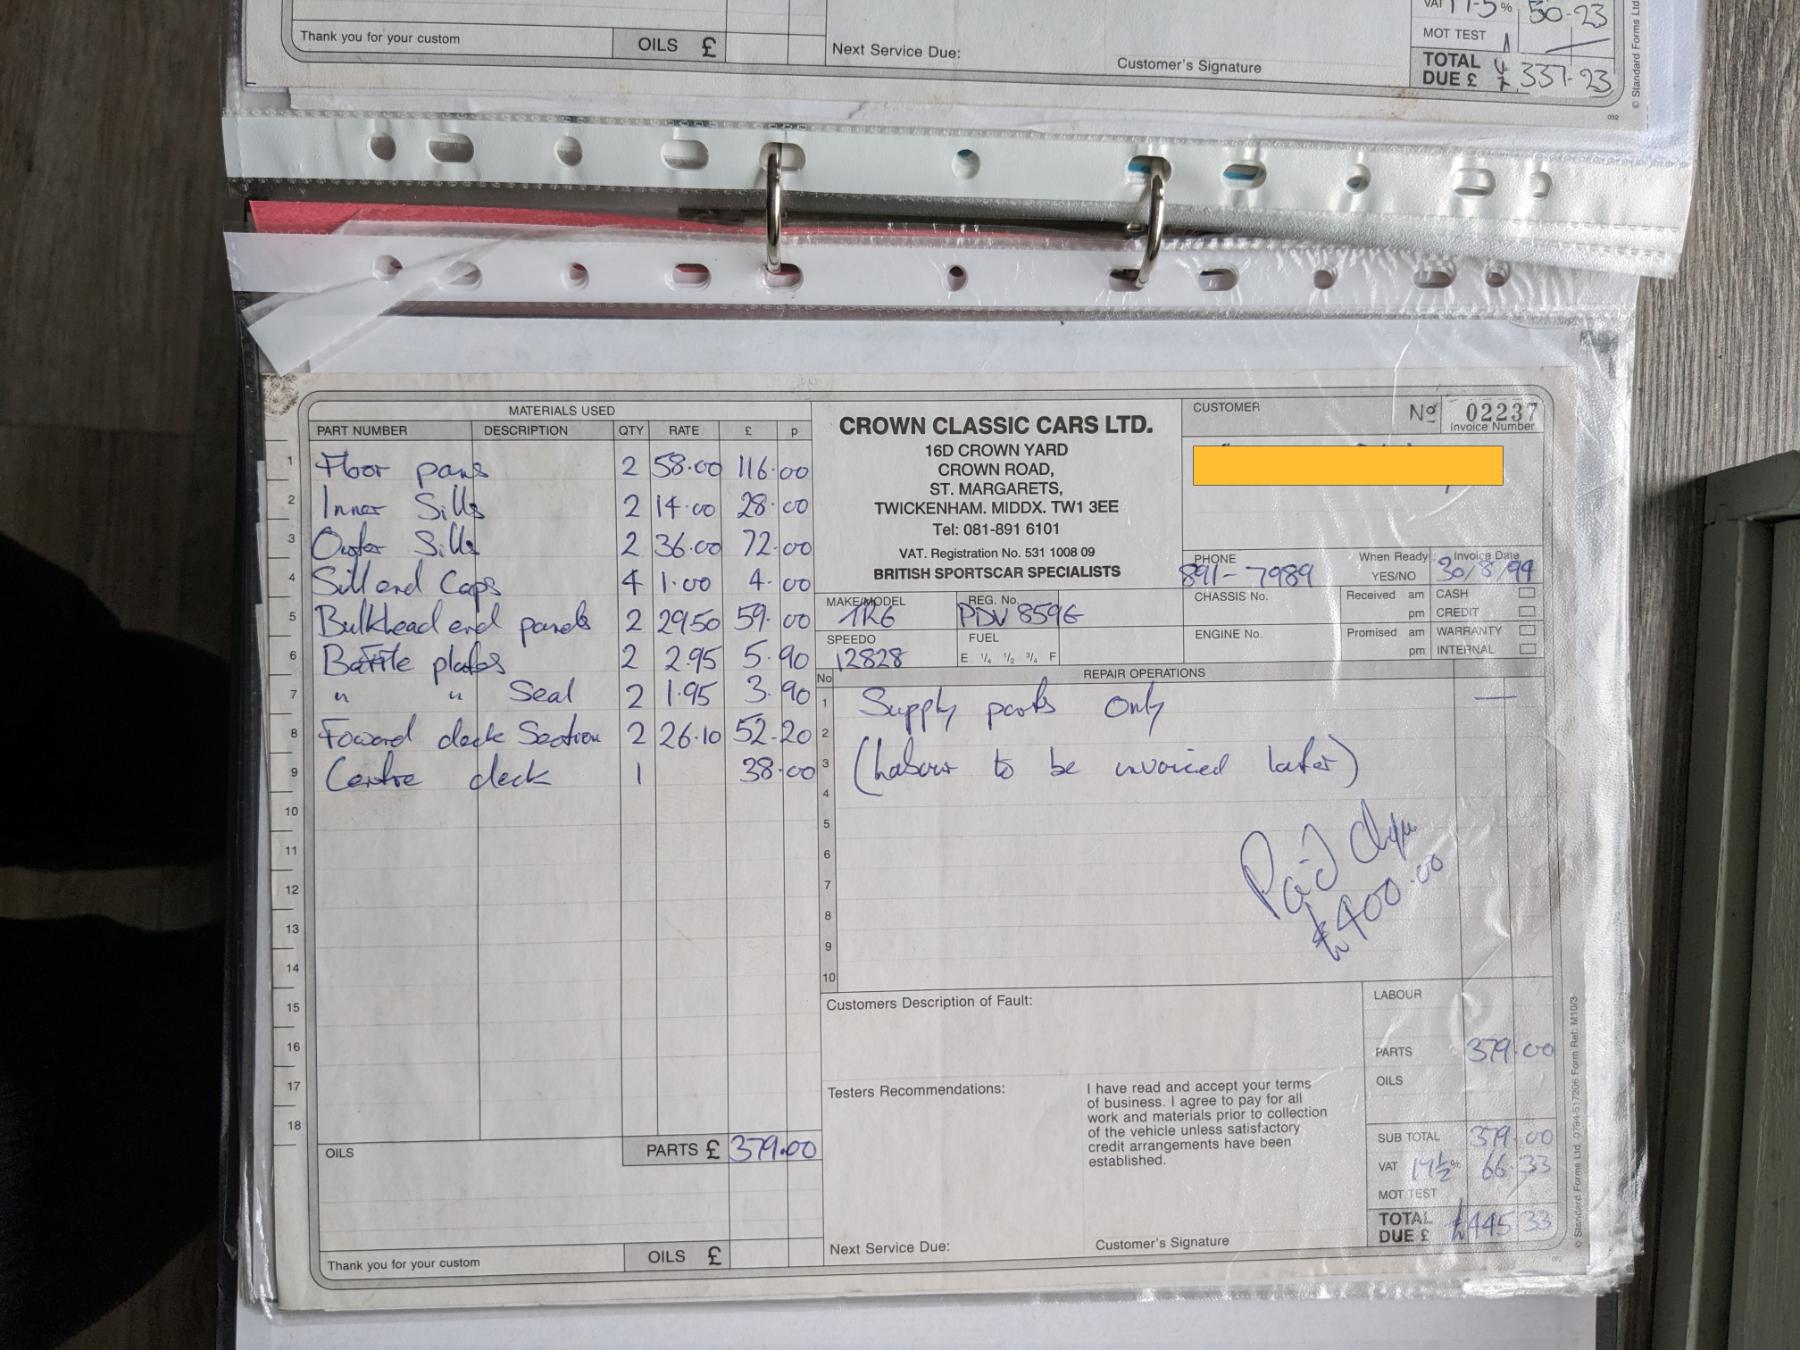 VAT 17.5% 50-23
MOT TEST
TOTAL DUE £ 337-23
Thank you for your custom
OILS £
Next Service Due:
Customer's Signature
© Standard Forms Ltd
052
MATERIALS USED
PART NUMBER DESCRIPTION QTY RATE £ p
1 Floor pans 2 58.00 116.00
2 Inner Sills 2 14.00 28.00
3 Outer Sills 2 36.00 72.00
4 Sill end Caps 4 1.00 4.00
5 Bulkhead end panels 2 29.50 59.00
6 Baffle plates 2 2.95 5.90
7 " " Seal 2 1.95 3.90
8 Foward deck Section 2 26.10 52.20
9 Centre deck 1 38.00
10
11
12
13
14
15
16
17
18
OILS
PARTS £ 379.00
Thank you for your custom
OILS £
CROWN CLASSIC CARS LTD.
16D CROWN YARD
CROWN ROAD,
ST. MARGARETS,
TWICKENHAM. MIDDX. TW1 3EE
Tel: 081-891 6101
VAT. Registration No. 531 1008 09
BRITISH SPORTSCAR SPECIALISTS
CUSTOMER
Nº 02237
Invoice Number
PHONE 891-7989
When Ready YES/NO
Invoice Date 30/8/94
MAKE/MODEL TR6
REG. No. PDV 859G
CHASSIS No.
Received am pm
CASH
CREDIT
SPEEDO 12828
FUEL
E ¼ ½ ¾ F
ENGINE No.
Promised am pm
WARRANTY
INTERNAL
No REPAIR OPERATIONS
1 Supply parts Only —
2
3 (Labour to be invoiced later)
4
5
6
7
8
9
10
Paid
£400.00
Customers Description of Fault:
Testers Recommendations:
I have read and accept your terms
of business. I agree to pay for all
work and materials prior to collection
of the vehicle unless satisfactory
credit arrangements have been
established.
Next Service Due:
Customer's Signature
LABOUR
PARTS 379.00
OILS
SUB TOTAL 379.00
VAT 17½% 66.33
MOT TEST
TOTAL DUE £ £445.33
© Standard Forms Ltd. 0794-517206 Form Ref: M10/3